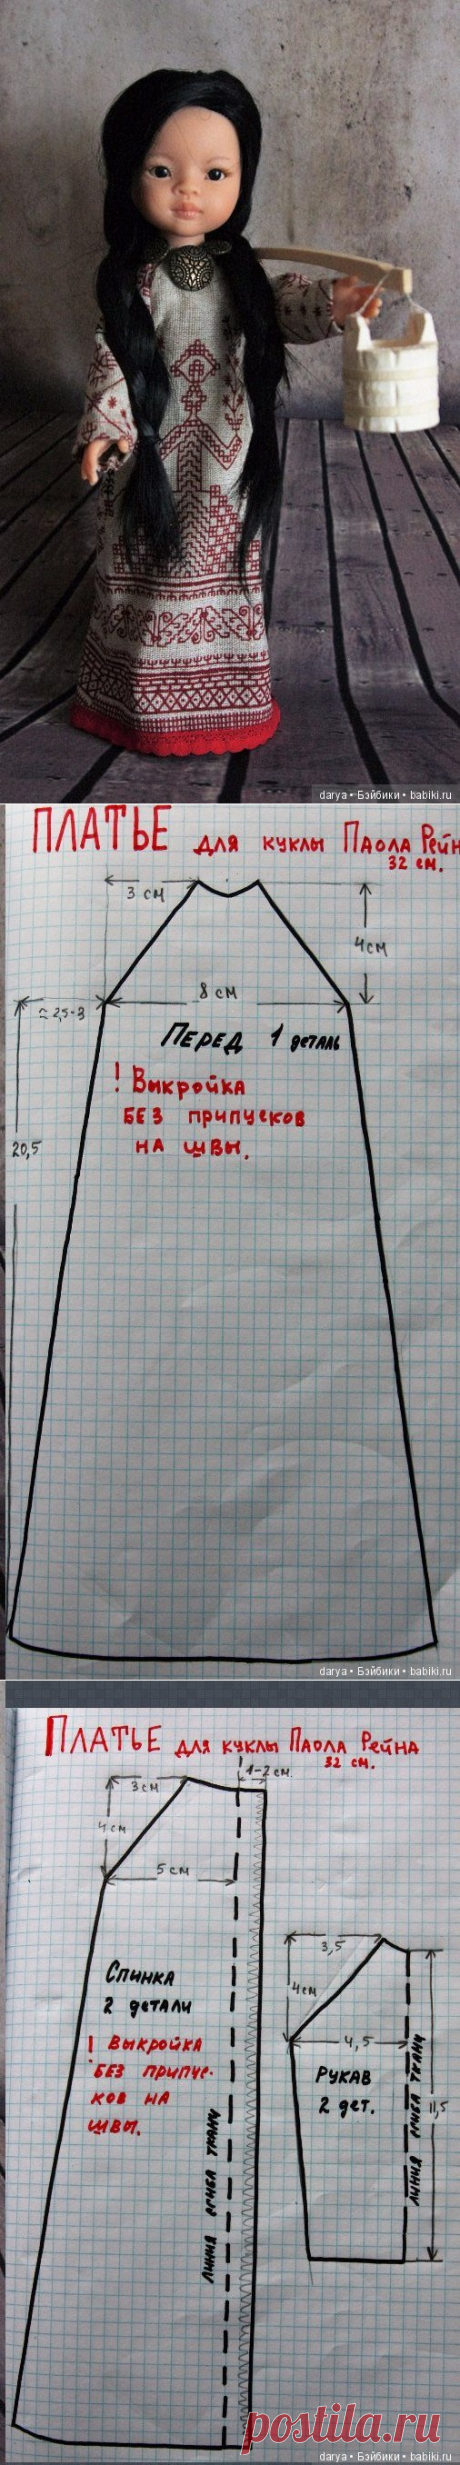 darya • Бэйбики • babiki.ru
ПЛАТЬЕ для куклы Паола Рейн
32 см.
3 см
4см
8 см
≈ 2,5-3
Перед 1 деталь
! Выкройка
БЕЗ припусков
НА швы.
20,5
darya • Бэйбики • babiki.ru
ПЛАТЬЕ для куклы Паола Рейна
32 см.
1-2 см.
3 см
4 см
5 см
Спинка
2 детали
! Выкройка
БЕЗ припус-
ков на
швы.
линия сгиба ткани
3,5
4см
4,5
Рукав
2 дет.
линия сгиба ткани
11,5
postila.ru
darya • Бэйбики • babiki.ru